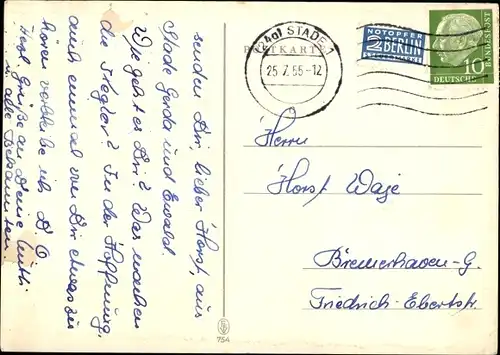 (24a) STADE 1
25.7.55-12
POSTKARTE
NOTOPFER
2 BERLIN
STEUERMARKE
10
DEUTSCHE
BUNDESPOST
senden Dir, lieber Horst, aus
Stade Gerda und Ewald.
Wie geht es Dir? Was machen
die? In der Hoffnung,
auch einmal von Dir etwas zu
hören verbleibe ich D. O
Herzl. Grüße an Deine Mutti
u. alle Bekannten
Herrn
Horst Waje
Bremerhaven-G.
Friedrich-Ebertstr.
754